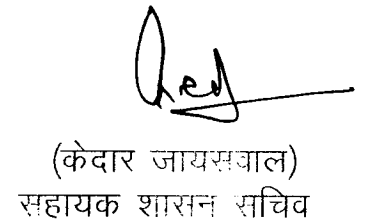 (केदार जायसवाल)
सहायक शासन सचिव